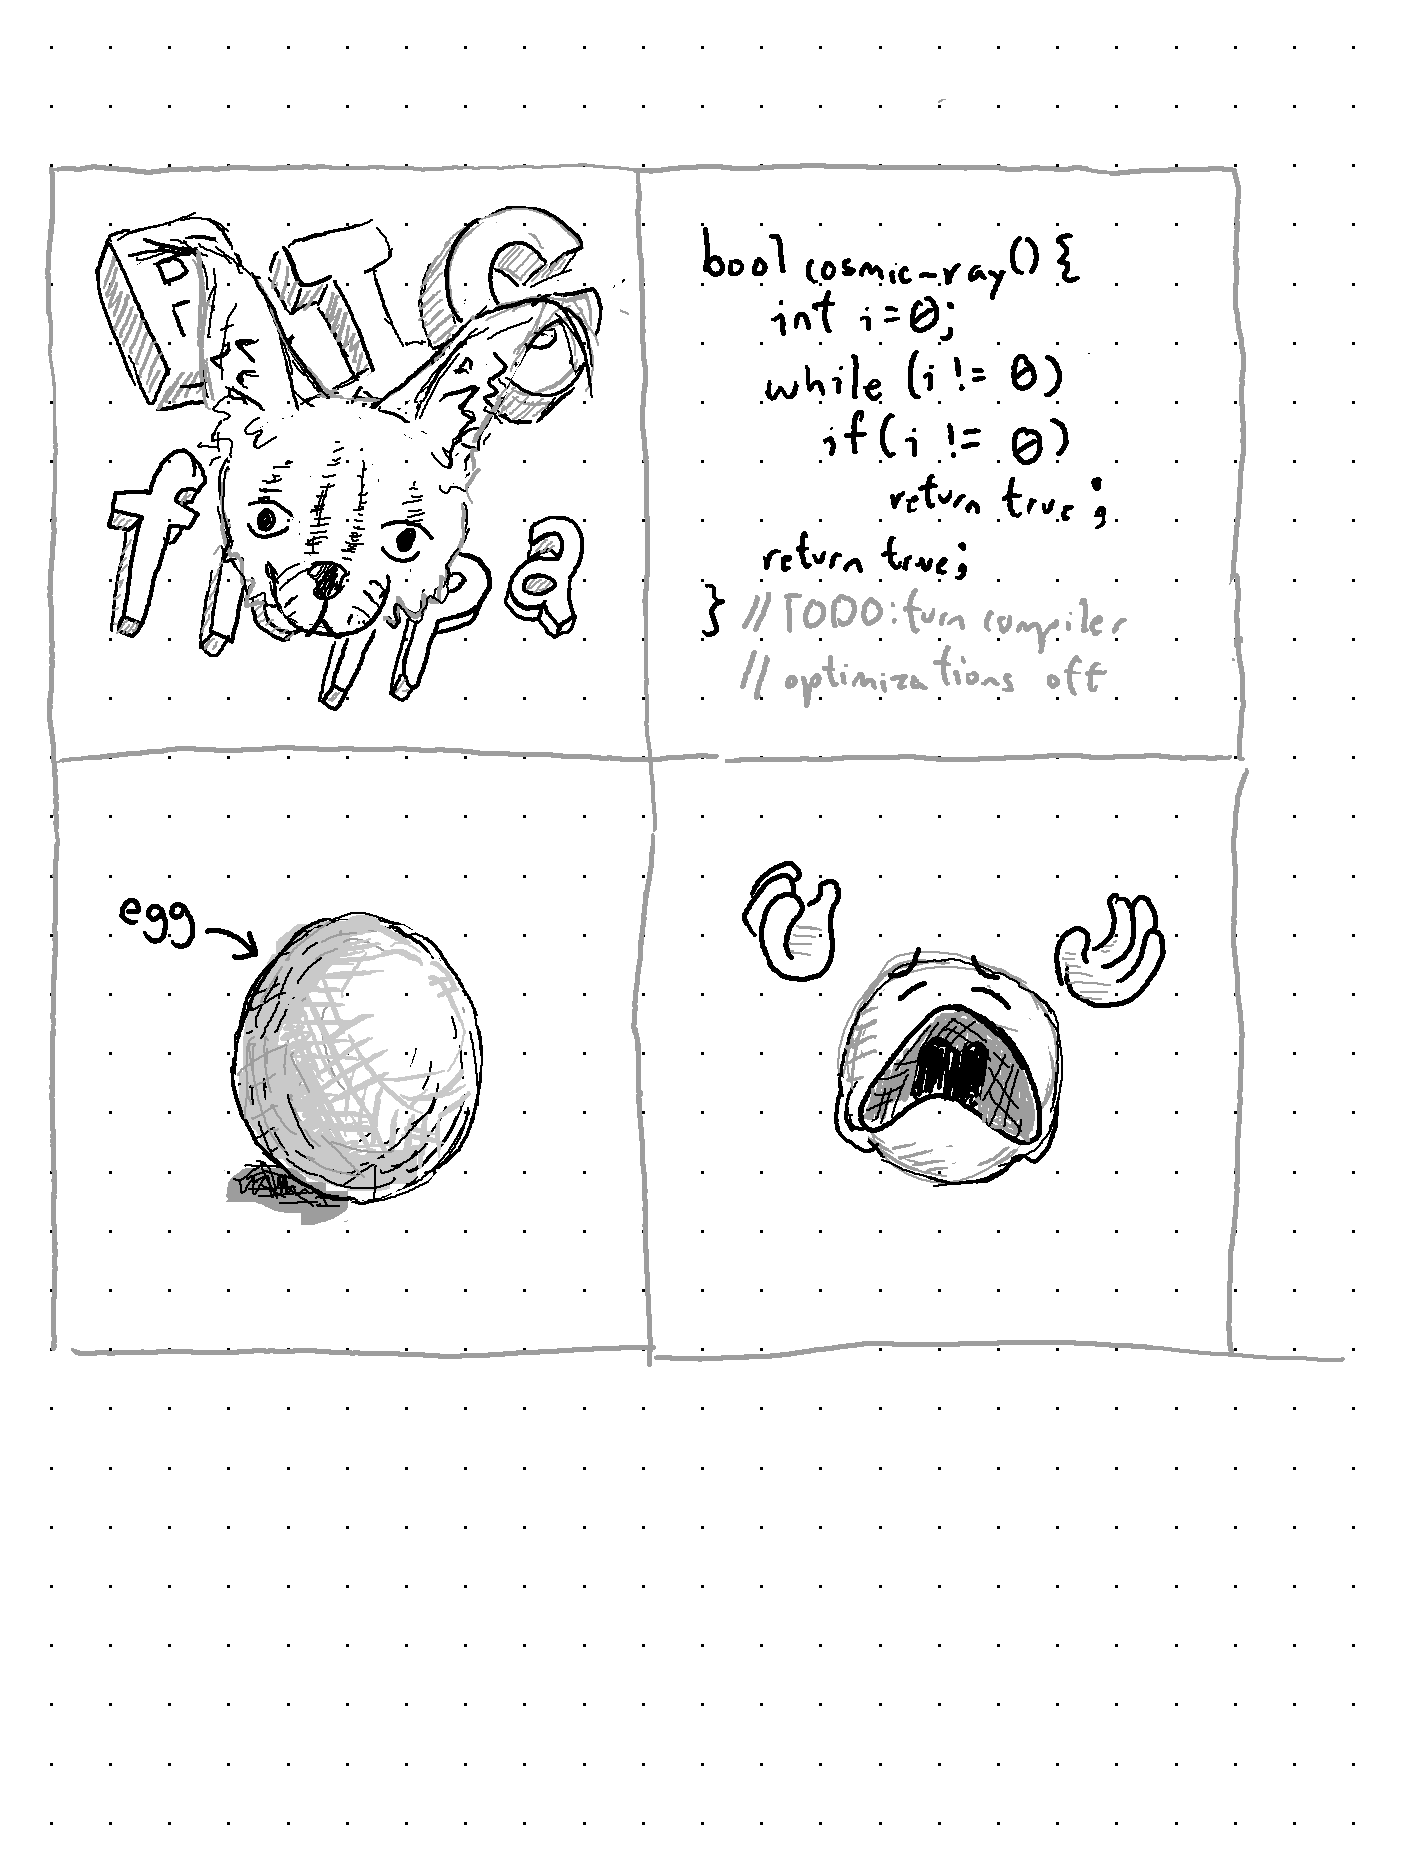 bool cosmic-ray() {
int i=0;
while (i != 0)
if(i != 0)
return true;
return true;
} // TODO: turn compiler
// optimizations off
egg